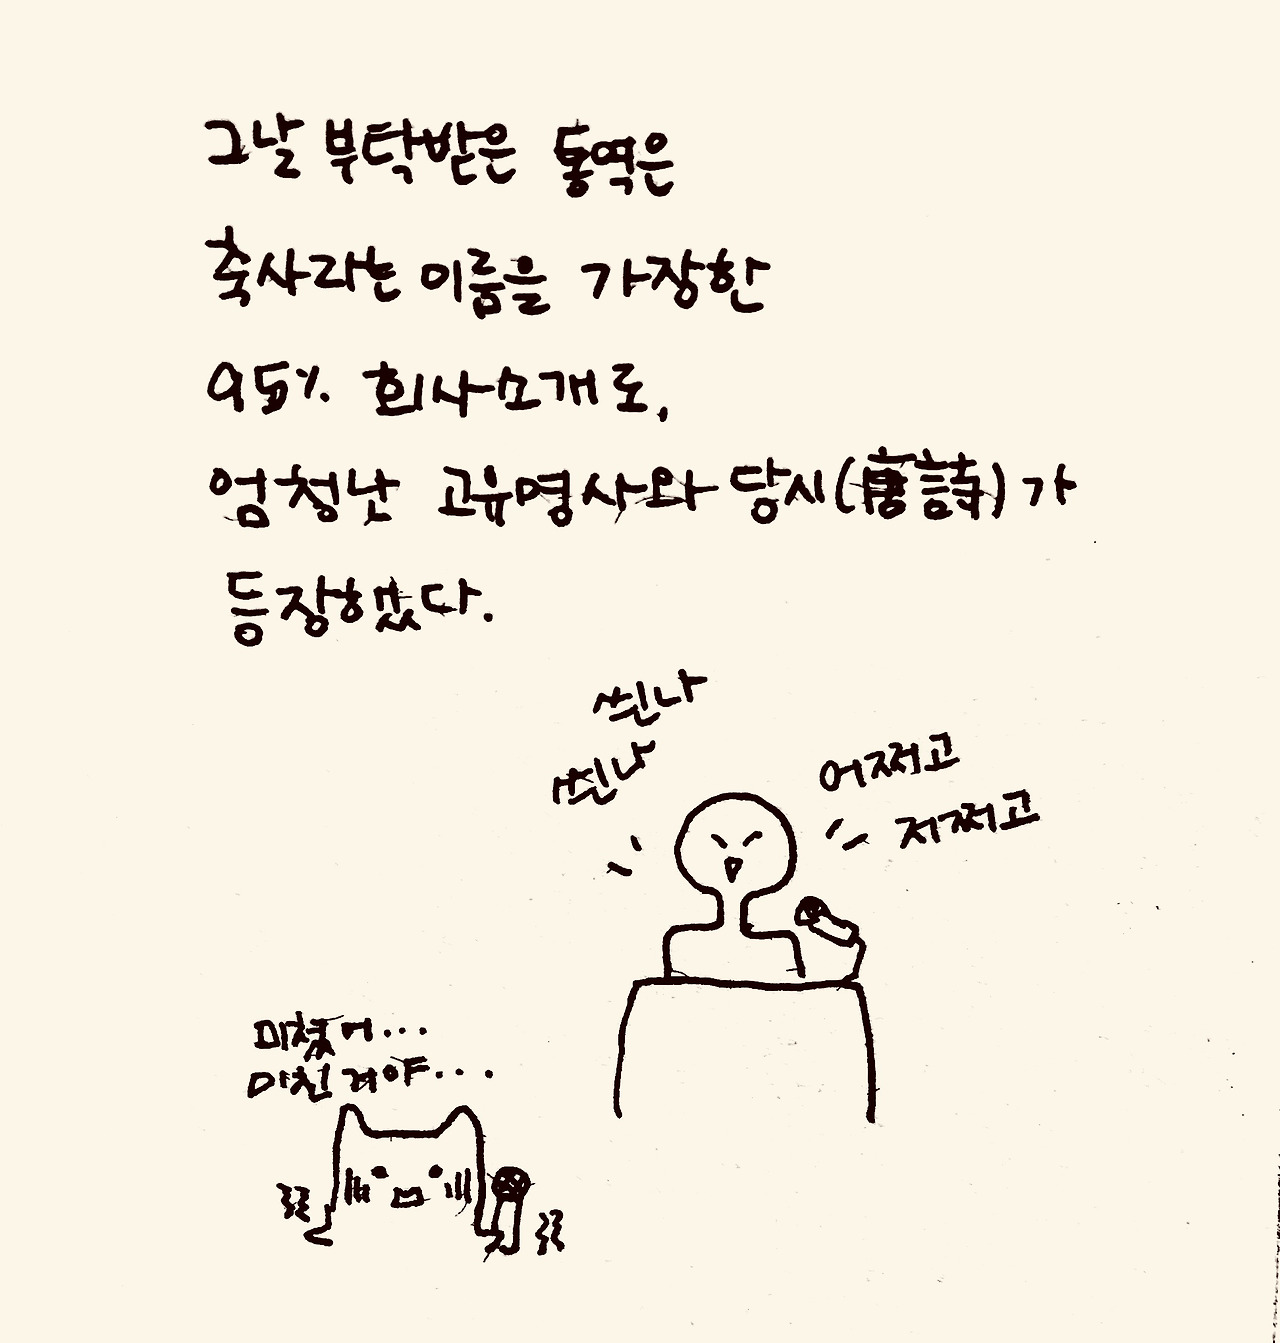 그날 부탁받은 통역은
축사라는 이름을 가장한
95% 회사소개로,
엄청난 고유명사와 당시(唐詩)가
등장했다.
씐나
씐나
어쩌고
저쩌고
미쳤어...
미친거야...